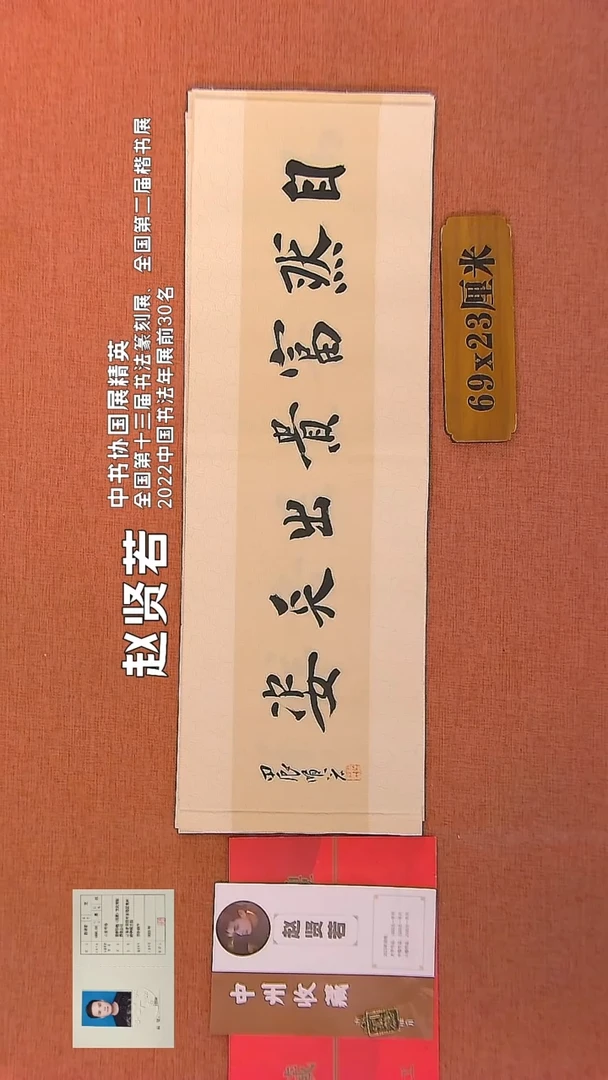 赵贤若
中书协国展精英
全国第十三届书法篆刻展、全国第二届楷书展
2022中国书法年展前30名
自然富貴出天姿
甲辰賢若
69x23厘米
赵贤若
中州收藏